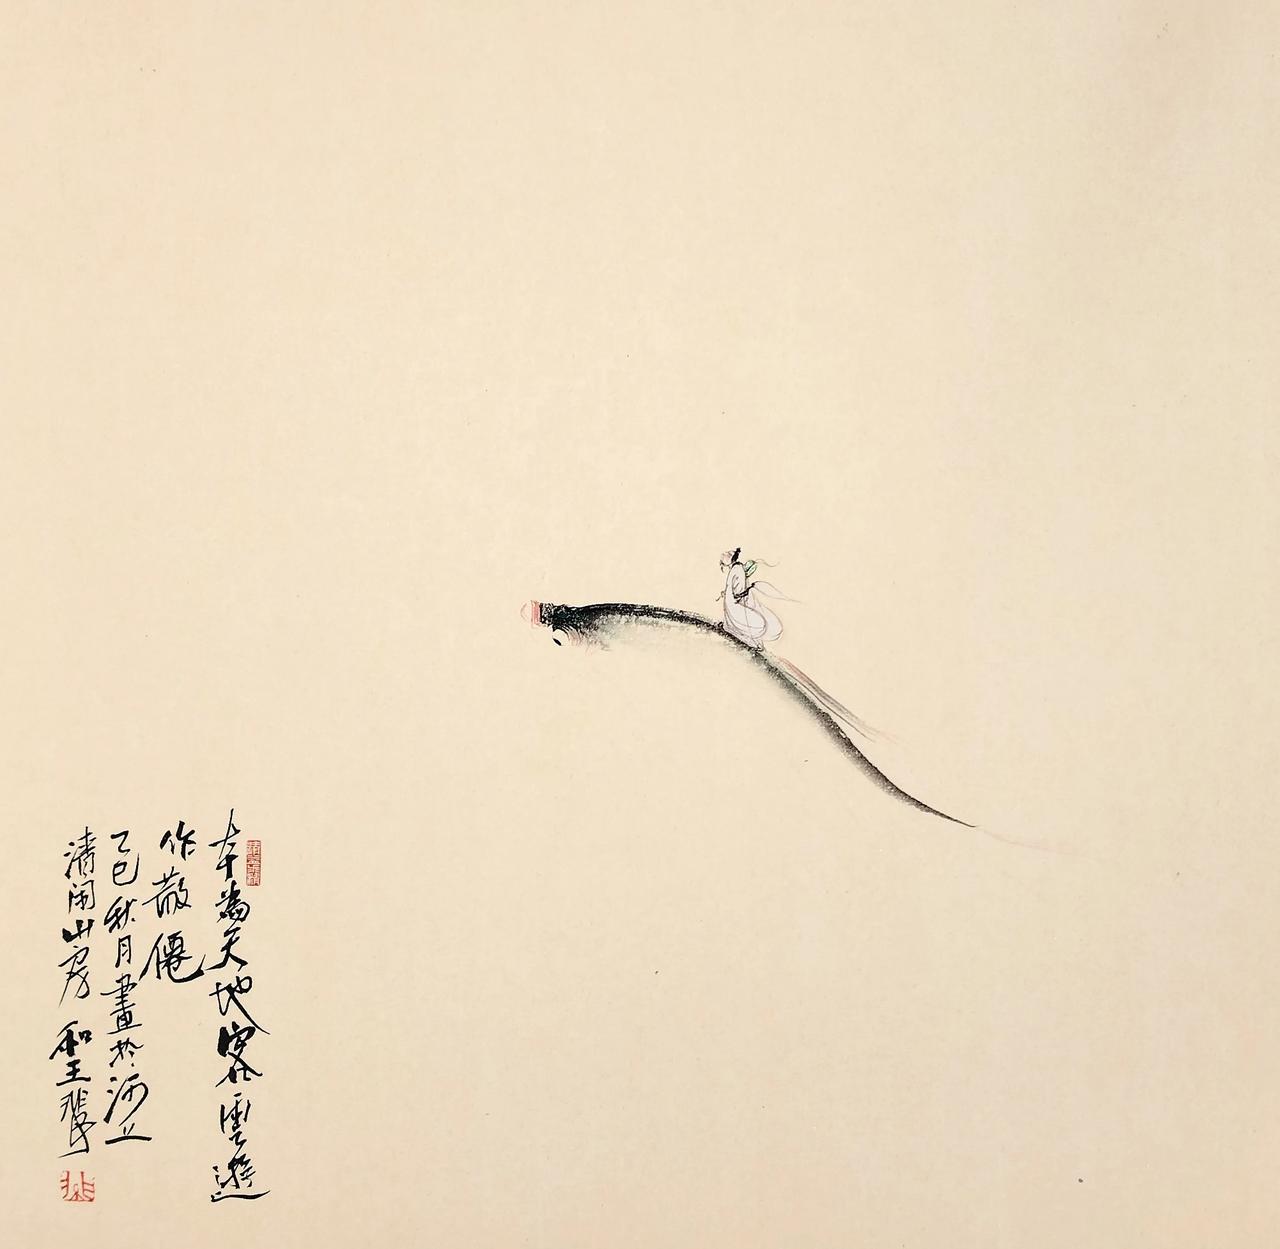 本為天地客雲遊
作散僊
乙巳秋月畫於
清閑山房 和王